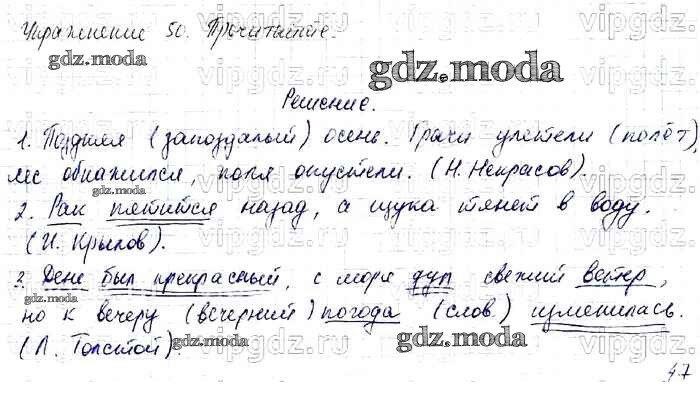 Упражнение 50. Прочитайте.
gdz.moda
gdz.moda
Решение.
1. Поздняя (запоздалый) осень. Грачи улетели (полёт),
лес обнажился, поля опустели. (Н. Некрасов).
gdz.moda
2. Рак пятится назад, а щука тянет в воду.
(И. Крылов).
3. День был прекрасный, с моря дул свежий ветер,
gdz.moda
но к вечеру (вечерний) погода (слов.) изменилась.
(Л. Толстой).
gdz.moda
gdz.moda
47
vipgdz